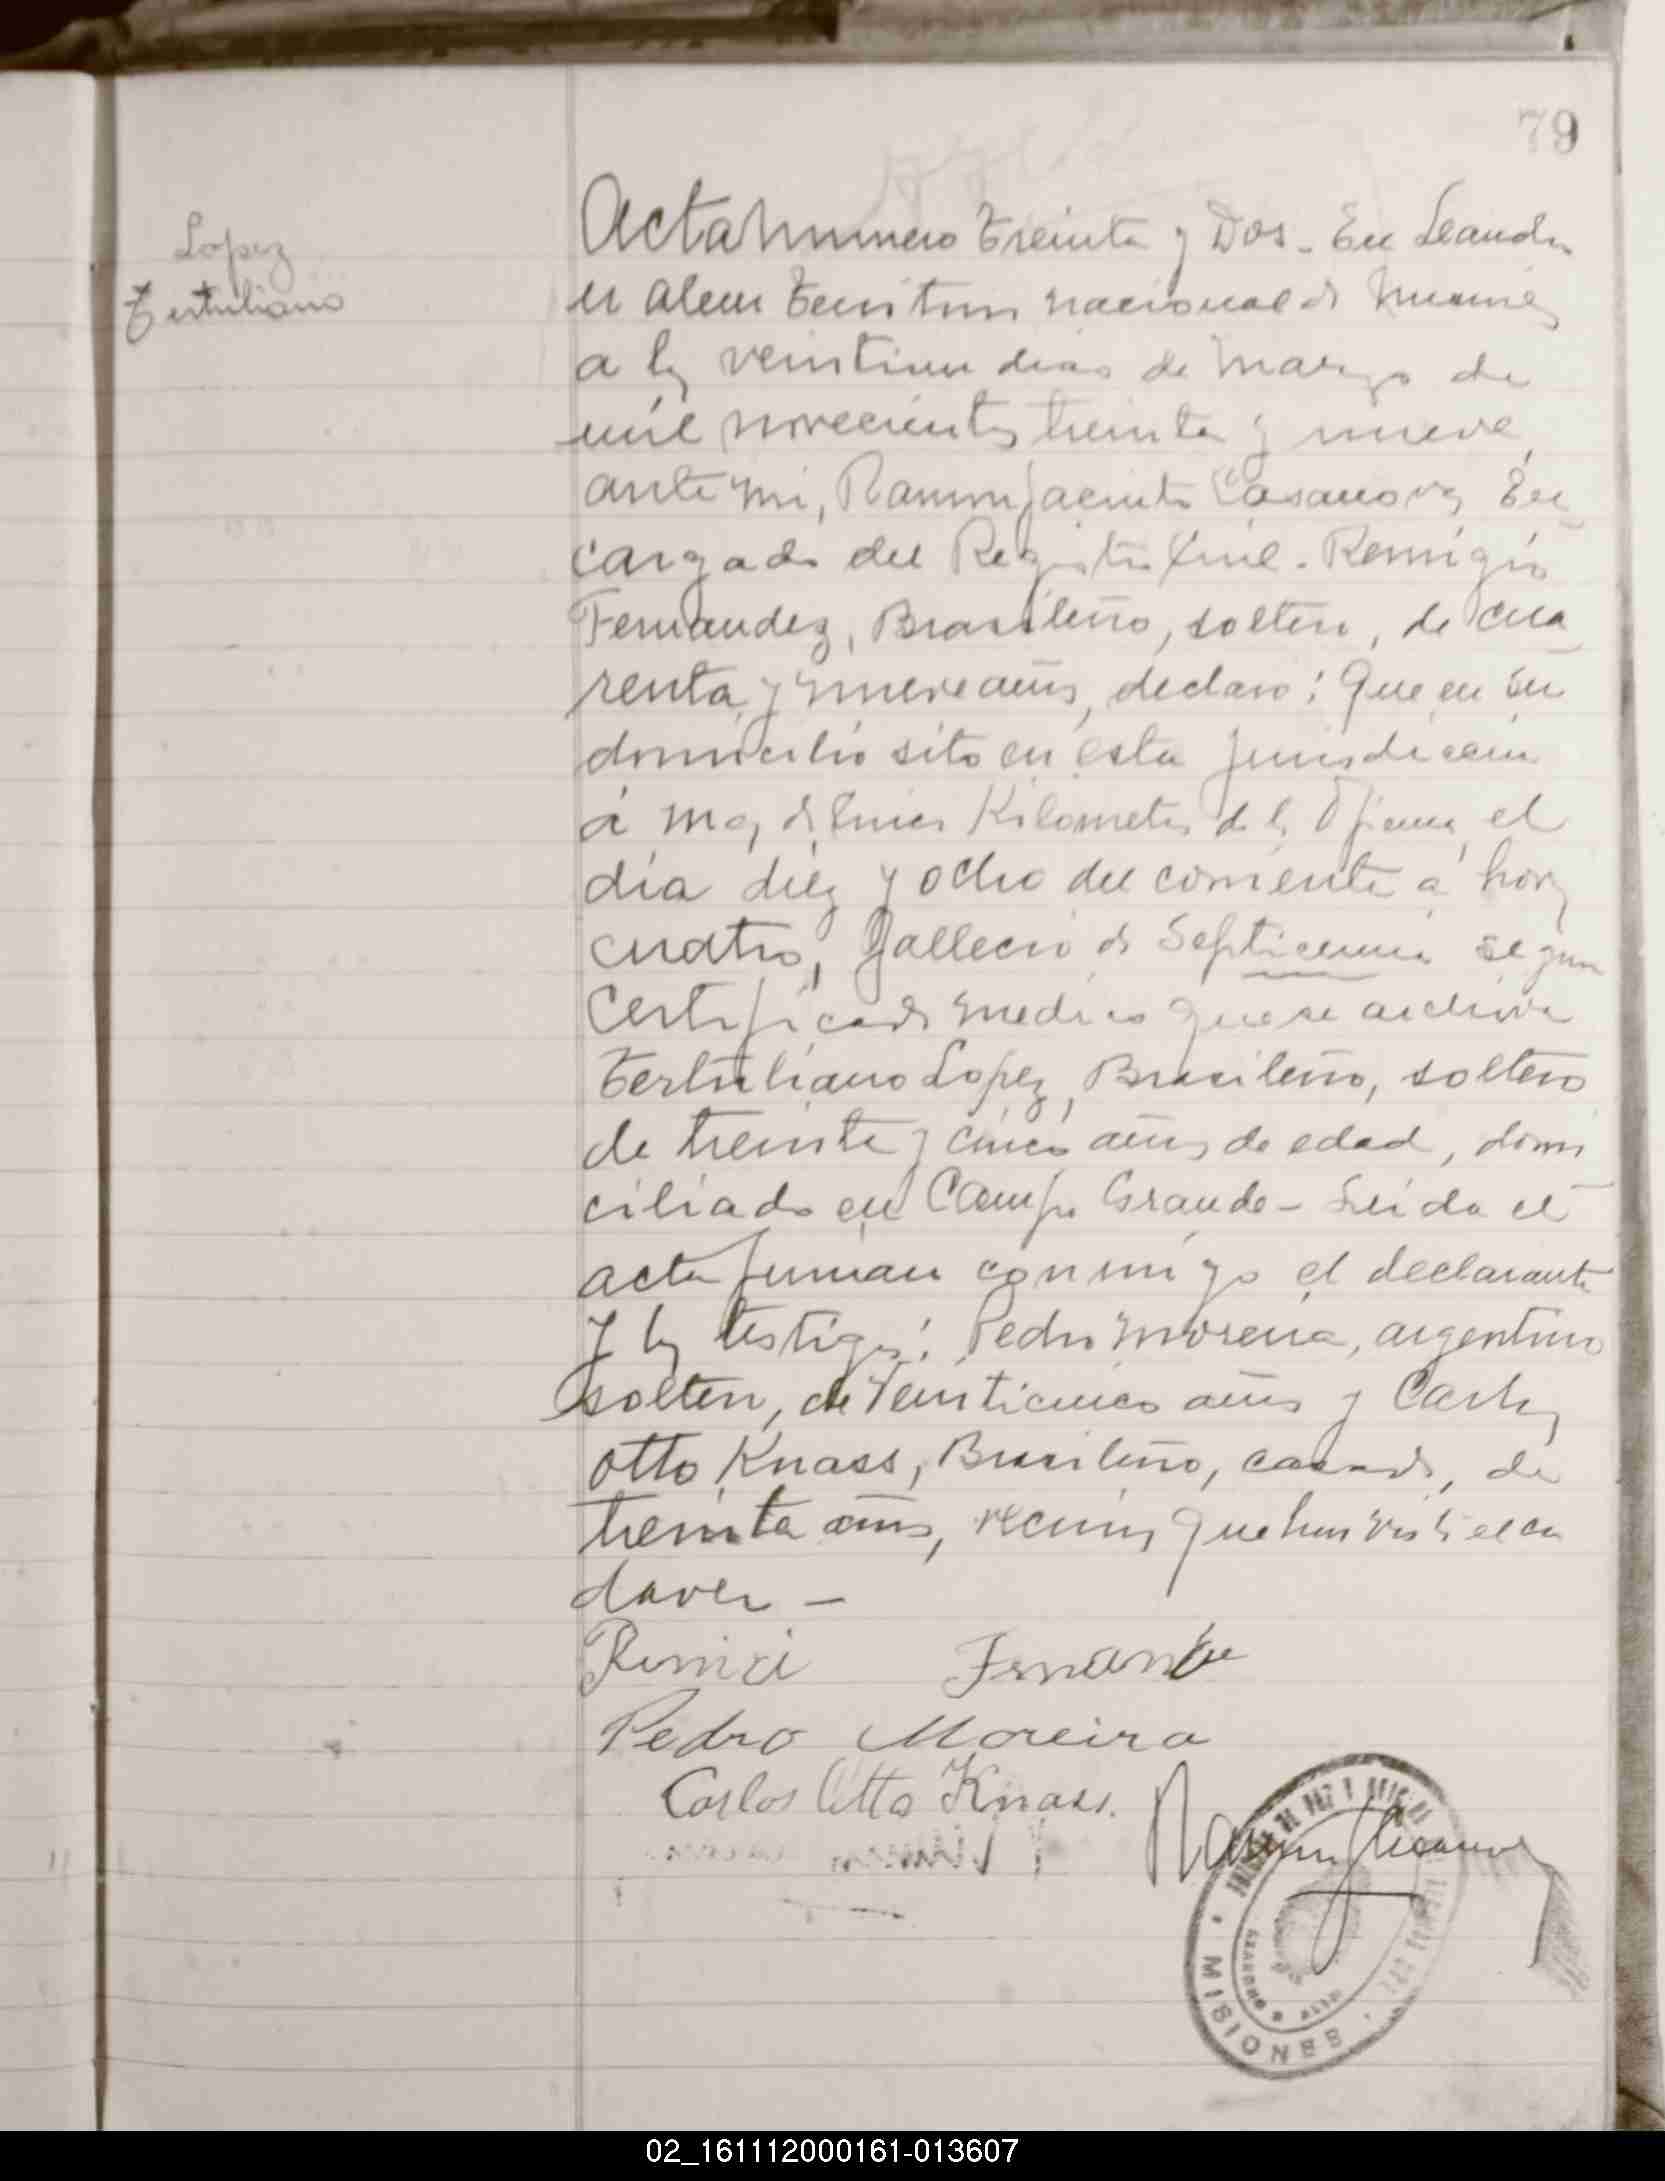 79
Lopez
Tertuliano
Acta numero treinta y Dos. En Leandro
N Alem territorio nacional de Misiones
a los veintiun dias de Marzo de
mil novecientos treinta y nueve,
ante mi, Ramon Jacinto Casanova, En
cargado del Registro Civil. Remigio
Fernandez, Brasileño, soltero, de cua
renta y nueve años, declaro: Que en su
domicilio sito en esta jurisdiccion
á mas de Kilometros de la Oficina, el
dia diez y ocho del corriente a horas
cuatro, fallecio de Septicemia segun
Certificado medico que se archiva
Tertuliano Lopez, Brasileño, soltero
de treinta y cinco años de edad, domi
ciliado en Campo Grande - Leida el
acta firman conmigo el declarante
y los testigos: Pedro Moreira, argentino
soltero, de veinticinco años y Carlos
Otto Knass, Brasileño, casado, de
treinta años, vecinos que han visto el ca
daver -
Pedro Moreira
Carlos Otto Knass.
MISIONES
02_161112000161-013607